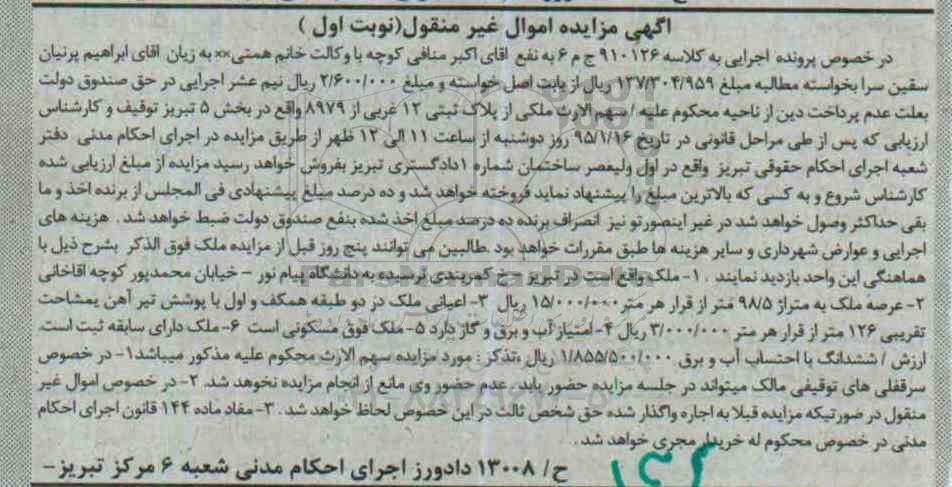 اگهی مزایده اموال غیر منقول(نوبت اول )
در خصوص پرونده اجرایی به کلاسه ۹۱۰۱۲۶ ج م ۶ به نفع اقای اکبر منافی کوچه با وکالت خانم همتی×× به زیان اقای ابراهیم پرنیان
سقین سرا بخواسته مطالبه مبلغ ۱۳۷/۳۰۴/۹۵۹ ریال از بابت اصل خواسته و مبلغ ۲/۶۰۰/۰۰۰ ریال نیم عشر اجرایی در حق صندوق دولت
بعلت عدم پرداخت دین از ناحیه محکوم علیه / سهم الارث ملکی از پلاک ثبتی ۱۲ غربی از ۸۹۷۹ واقع در بخش ۵ تبریز توقیف و کارشناس
ارزیابی که پس از طی مراحل قانونی در تاریخ ۹۵/۱/۱۶ روز دوشنبه از ساعت ۱۱ الی ۱۲ ظهر از طریق مزایده در اجرای احکام مدنی دفتر
شعبه اجرای احکام حقوقی تبریز واقع در اول ولیعصر ساختمان شماره ۱دادگستری تبریز بفروش خواهد رسید مزایده از مبلغ ارزیابی شده
کارشناس شروع و به کسی که بالاترین مبلغ را پیشنهاد نماید فروخته خواهد شد و ده درصد مبلغ پیشنهادی فی المجلس از برنده اخذ و ما
بقی حداکثر وصول خواهد شد در غیر اینصورتو نیز انصراف برنده ده درصد مبلغ اخذ شده بنفع صندوق دولت ضبط خواهد شد . هزینه های
اجرایی و عوارض شهرداری و سایر هزینه ها طبق مقررات خواهد بود .طالبین می توانند پنج روز قبل از مزایده ملک فوق الذکر بشرح ذیل با
هماهنگی این واحد بازدید نمایند . ۱- ملک واقع است در تبریز - خ کمربندی نرسیده به دانشگاه پیام نور - خیابان محمدپور کوچه اقاخانی
۲- عرصه ملک به متراژ ۹۸/۵ متر از قرار هر متر ۱۵/۰۰۰/۰۰۰ ریال ۳- اعیانی ملک در دو طبقه همکف و اول با پوشش تیر آهن بمشاحت
تقریبی ۱۲۶ متر از قرار هر متر ۳/۰۰۰/۰۰۰ ریال ۴- امتیاز آب و برق و گاز دارد ۵- ملک فوق مسکونی است ۶- ملک دارای سابقه ثبت است.
ارزش / ششدانگ با احتساب آب و برق ۱/۸۵۵/۵۰۰/۰۰۰ ریال ،تذکر : مورد مزایده سهم الارث محکوم علیه مذکور میباشد۱- در خصوص
سرقفلی های توقیفی مالک میتواند در جلسه مزایده حضور یابد، عدم حضور وی مانع از انجام مزایده نخوهد شد. ۲- در خصوص اموال غیر
منقول در صورتیکه مزایده قبلا به اجاره واگذار شده حق شخص ثالث در این خصوص لحاظ خواهد شد . ۳- مفاد ماده ۱۴۴ قانون اجرای احکام
مدنی در خصوص محکوم له خریدار مجری خواهد شد .
ح/ ۱۳۰۰۸ دادورز اجرای احکام مدنی شعبه ۶ مرکز تبریز-